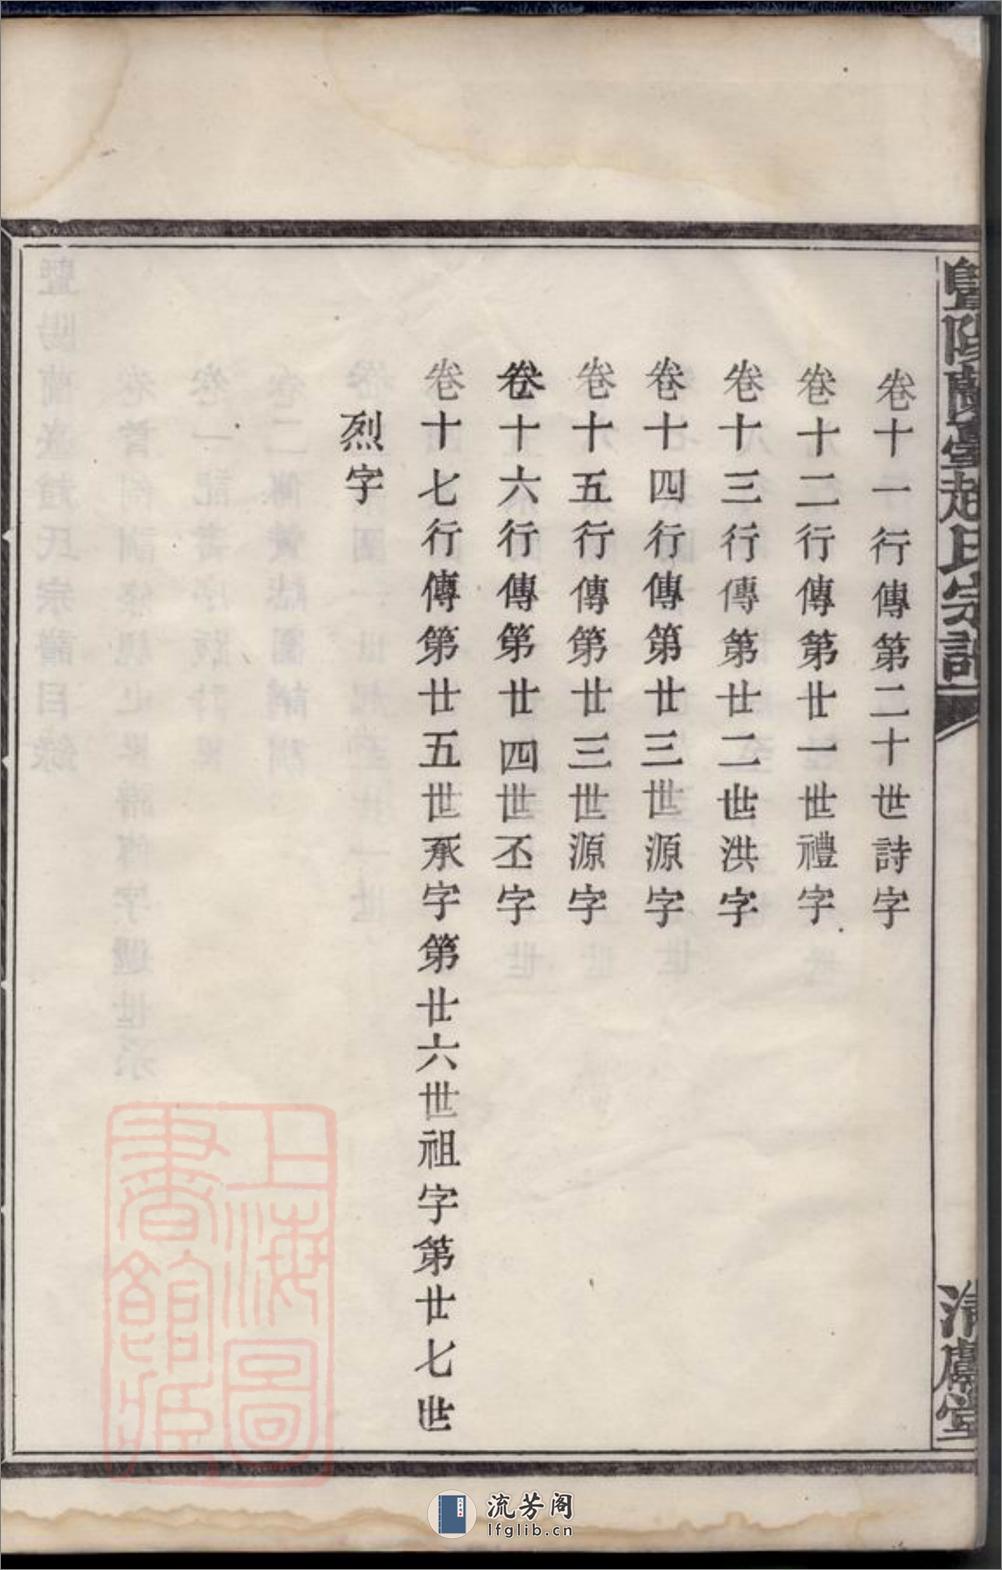 暨陽蘭臺趙氏宗譜
清慶堂
卷十一行傳第二十世詩字
卷十二行傳第廿一世禮字
卷十三行傳第廿二世洪字
卷十四行傳第廿三世源字
卷十五行傳第廿三世源字
卷十六行傳第廿四世丕字
卷十七行傳第廿五世承字第廿六世祖字第廿七世
烈字
上海圖書館藏
流芳阁
lfglib.cn